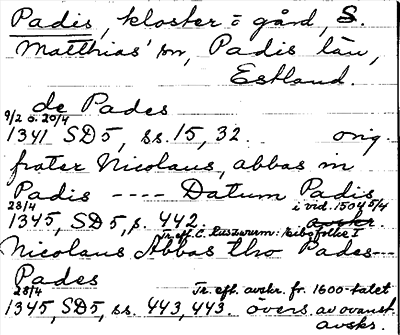 Padis, kloster o gård, S.
Matthias' sn, Padis län,
Estland.
de Pades
9/2 o. 20/4
1341 SD5, ss. 15, 32. orig.
frater Nicolaus, abbas in
Padis ---- Datum Padis
28/4 i vid. 1504 5/4
1345, SD5, s. 442.
Tr. eft. C. Russwurm: Eibofolke I
Nicolaus Abbas tho Pades---
Pades
28/4 Tr. eft. avskr. fr. 1600-talet
1345, SD5, ss. 443, 443. övers. av ovanst.
avskr.